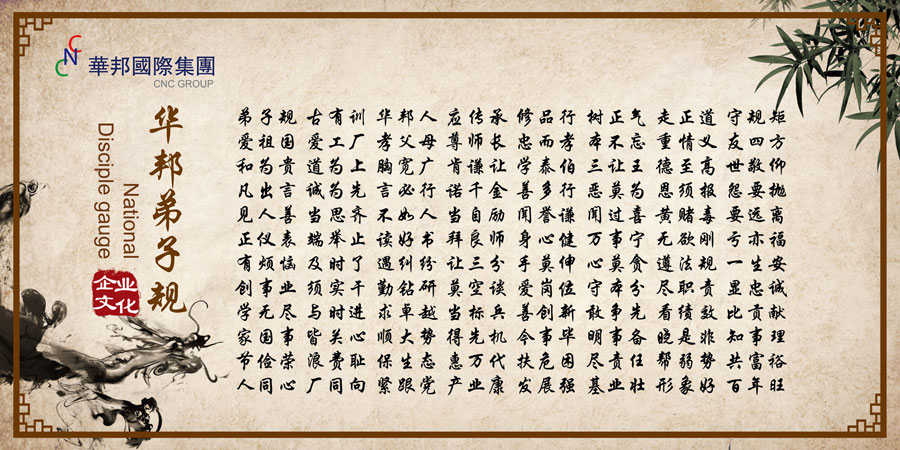 華邦國際集團
CNC GROUP
华邦弟子规
National
Disciple gauge
企业文化
弟子规 古有训 华邦人 应传承 修品行 树正气 走正道 守规矩
爱祖国 爱工厂 孝父母 尊师长 忠而孝 本不忘 重情义 友四方
和为贵 道为上 胸宽广 肯谦让 学泰伯 三让王 德至高 世敬仰
凡出言 诚为先 言必行 诺千金 善多行 恶莫为 恩须报 怨要抛
见人善 当思齐 不如人 当自励 闻誉谦 闻过喜 黄赌毒 要远离
正仪表 端举止 读好书 拜良师 身心健 万事宁 无欲刚 亏亦福
有烦恼 及时了 遇纠纷 让三分 手莫伸 心莫贪 遵法规 一生安
创事业 须实干 勤钻研 莫空谈 爱岗位 守本分 尽职责 显忠诚
学无尽 与时进 求卓越 当标兵 善创新 敢争先 看绩效 比贡献
家国事 皆关心 顺大势 得先机 今事毕 明事备 晓是非 知事理
节俭荣 浪费耻 保生态 惠万代 扶危困 尽责任 帮弱势 共富裕
人同心 厂同向 紧跟党 产业康 发展强 基业壮 形象好 百年旺